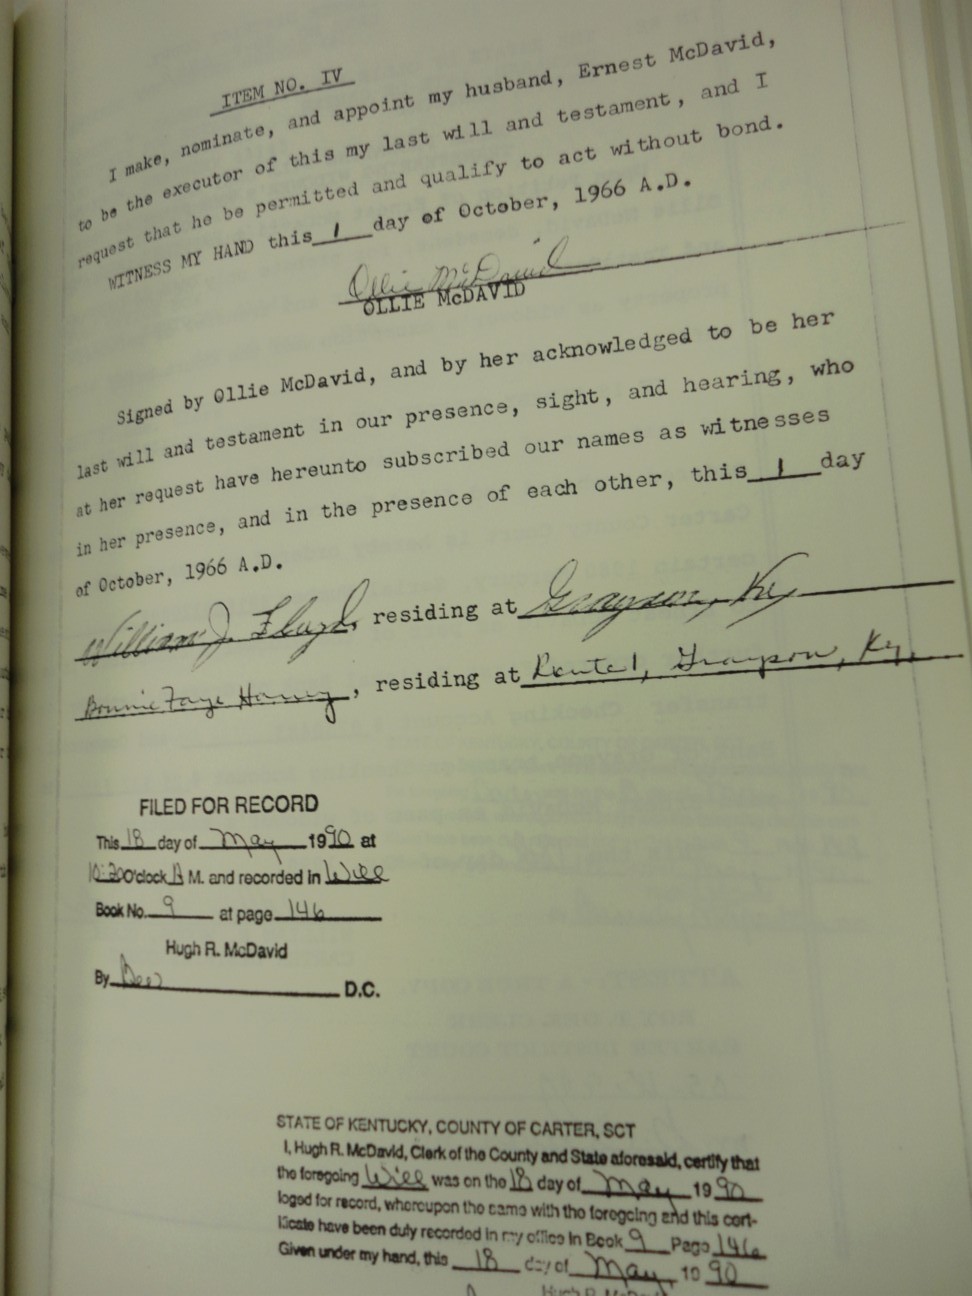 ITEM NO. IV
I make, nominate, and appoint my husband, Ernest McDavid,
to be the executor of this my last will and testament, and I
request that he be permitted and qualify to act without bond.
WITNESS MY HAND this 1 day of October, 1966 A.D.
Ollie McDavid
OLLIE McDAVID
Signed by Ollie McDavid, and by her acknowledged to be her
last will and testament in our presence, sight, and hearing, who
at her request have hereunto subscribed our names as witnesses
in her presence, and in the presence of each other, this 1 day
of October, 1966 A.D.
William J. Floyd, residing at Grayson, Ky
Bonnie Faye , residing at Route 1, Grayson, Ky.
FILED FOR RECORD
This 18 day of May 1990 at
10:20 O'clock A M. and recorded in Will
Book No. 9 at page 146
Hugh R. McDavid
By D.C.
STATE OF KENTUCKY, COUNTY OF CARTER, SCT
I, Hugh R. McDavid, Clerk of the County and State aforesaid, certify that
the foregoing Will was on the 18 day of May 1990
loged for record, whereupon the same with the foregoing and this cert-
ificate have been duly recorded in my office in Book 9 Page 146
Given under my hand, this 18 day of May, 1990
Hugh R.